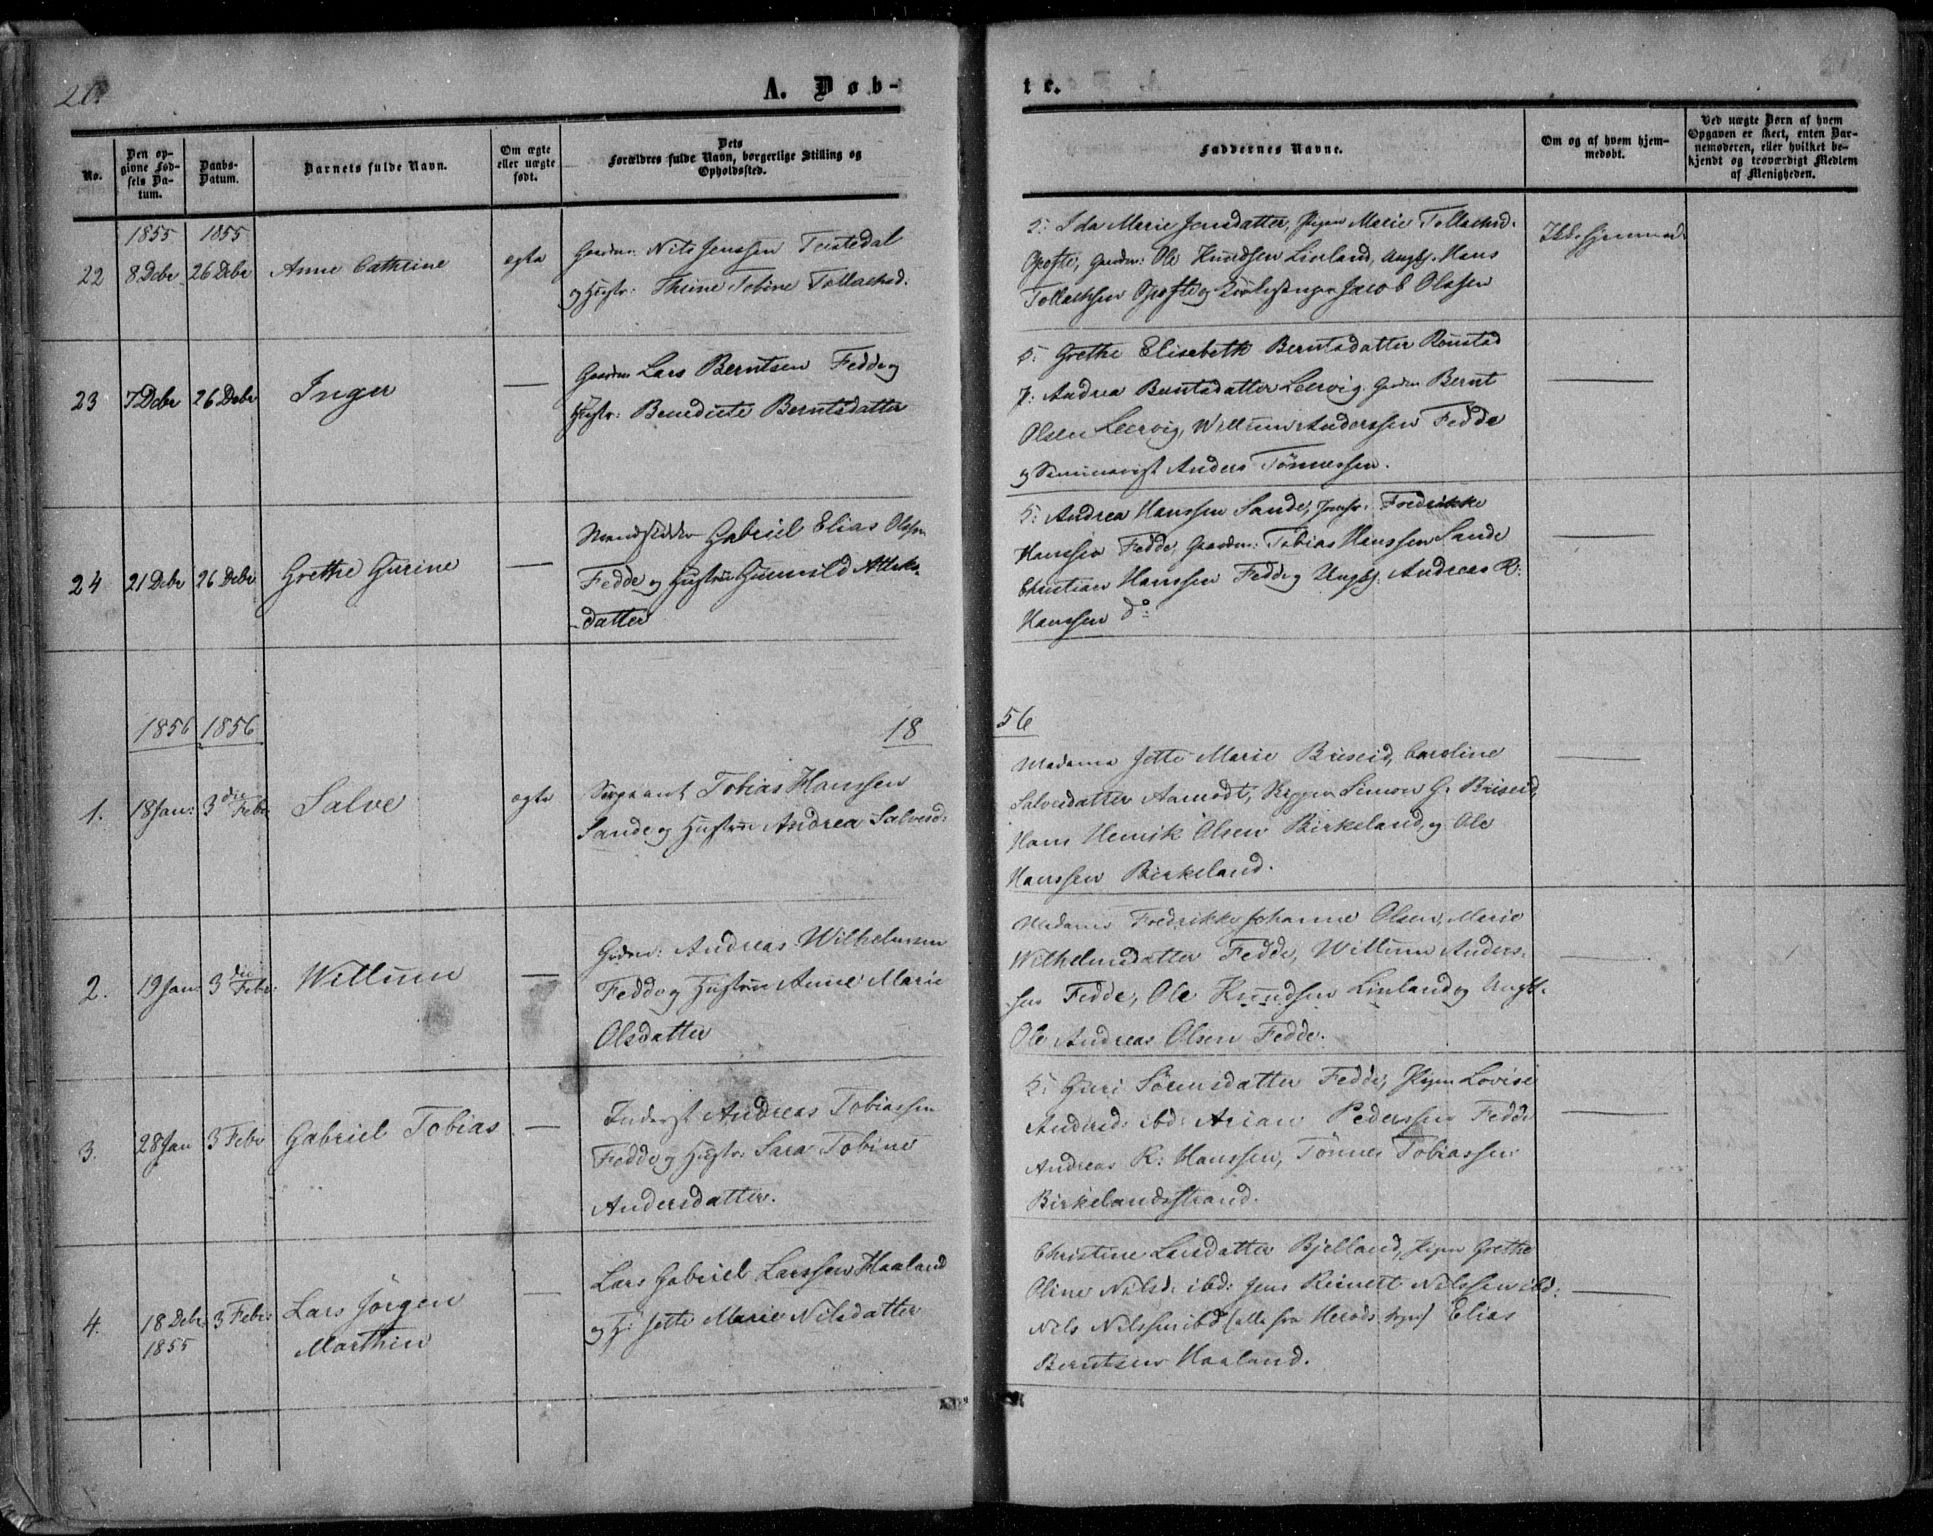 20.
A. Døb-
te.
No.
Den op-
givne Fød-
sels Da-
tum.
Daabs-
Datum.
Barnets fulde Navn.
Om ægte
eller uægte
født.
Dets
Forældres fulde Navn, borgerlige Stilling og
Opholdssted.
Faddernes Navne.
Om og af hvem hjem-
medøbt.
Ved uægte Børn af hvem
Opgaven er skeet, enten Bar-
nemoderen, eller hvilket be-
kjendt og troværdigt Medlem
af Menigheden.
1855 1855
22 8 Debr 26 Debr Anne Cathrine ægte
Gaardm: Nils Jenssen Teistedal
og Hustr: Thrine Tobine Tollachsd.
K: Ida Marie Jensdatter, Pigen Marie Tollachsd.
Opofte, Gaardm: Ole Knudsen Linland, Ungkj. Hans
Tollachsen Opofte og Jacob Olssen
Ikke hjemmed.
23 7 Debr 26 Debr Inger —
Gaardm Lars Berntsen Fedde og
Hustr: Benedicte Berntsdatter
K: Grethe Elisebeth Berntsdatter Rønstad
P: Andrea Berntsdatter Leervig, Gardm Bernt
Olsen Leervig, Willum Anderssen Fedde
og Seminarist Anders Tønnessen.
—
24 21 Debr 26 Debr Grethe Gurine —
Gabriel Elias Olsen
Fedde og Hustru Gunvild Atlaks-
datter
K: Andrea Hanssen Sande, Jomfr: Fredrikke
Hanssen Fedde, Gaardm: Tobias Hanssen Sande
Christian Hanssen Fedde og Ungkj. Andreas R:
Hanssen do:
—
1856 1856
18
56
1. 18 Jan: 3die Febr Salve ægte
Sergeant Tobias Hanssen
Sande og Hustru Andrea Salvesd:
Madame Jette Marie Briseid, Caroline
Salvesdatter Aamodt, Simon G. Briseid,
Hans Henrik Olsen Birkeland, og Ole
Hanssen Birkeland.
—
2. 19 Jan: 3die Febr: Willum —
Grdm: Andreas Wilhelmsen
Fedde og Hustru Anne Marie
Olsdatter
Madame Fredrikke Johanne Olsen, Marie
Wilhelmsdatter Fedde, Willum Anders-
sen Fedde, Ole Knudsen Linland og Ungk.
Ole Andreas Olsen Fedde.
—
3. 28 Jan 3 Febr Gabriel Tobias —
Inderst Andreas Tobiassen
Fedde og Hustr: Sara Tobine
Andersdatter.
K: Guri Sørensdatter Fedde, Pigen Lovise
Andersd: ibd: Arian Pederssen Fedde
Andreas R: Hanssen, Tønnes Tobiassen
Birkelandsstrand.
—
4. 18 Debr 3 Febr: Lars Jørgen —
1855 Marthin
Lars Gabriel Larssen Haaland
og H: Jette Marie Nilsdatter
Christine Larsdatter Bjelland, Pigen Grethe
Oline Nilsd: ibd: Jens Reinert Nilssen ibd:
Nils Nilssen ibd (alle fra Herøds sogn) Elias
Berntsen Haaland.
—